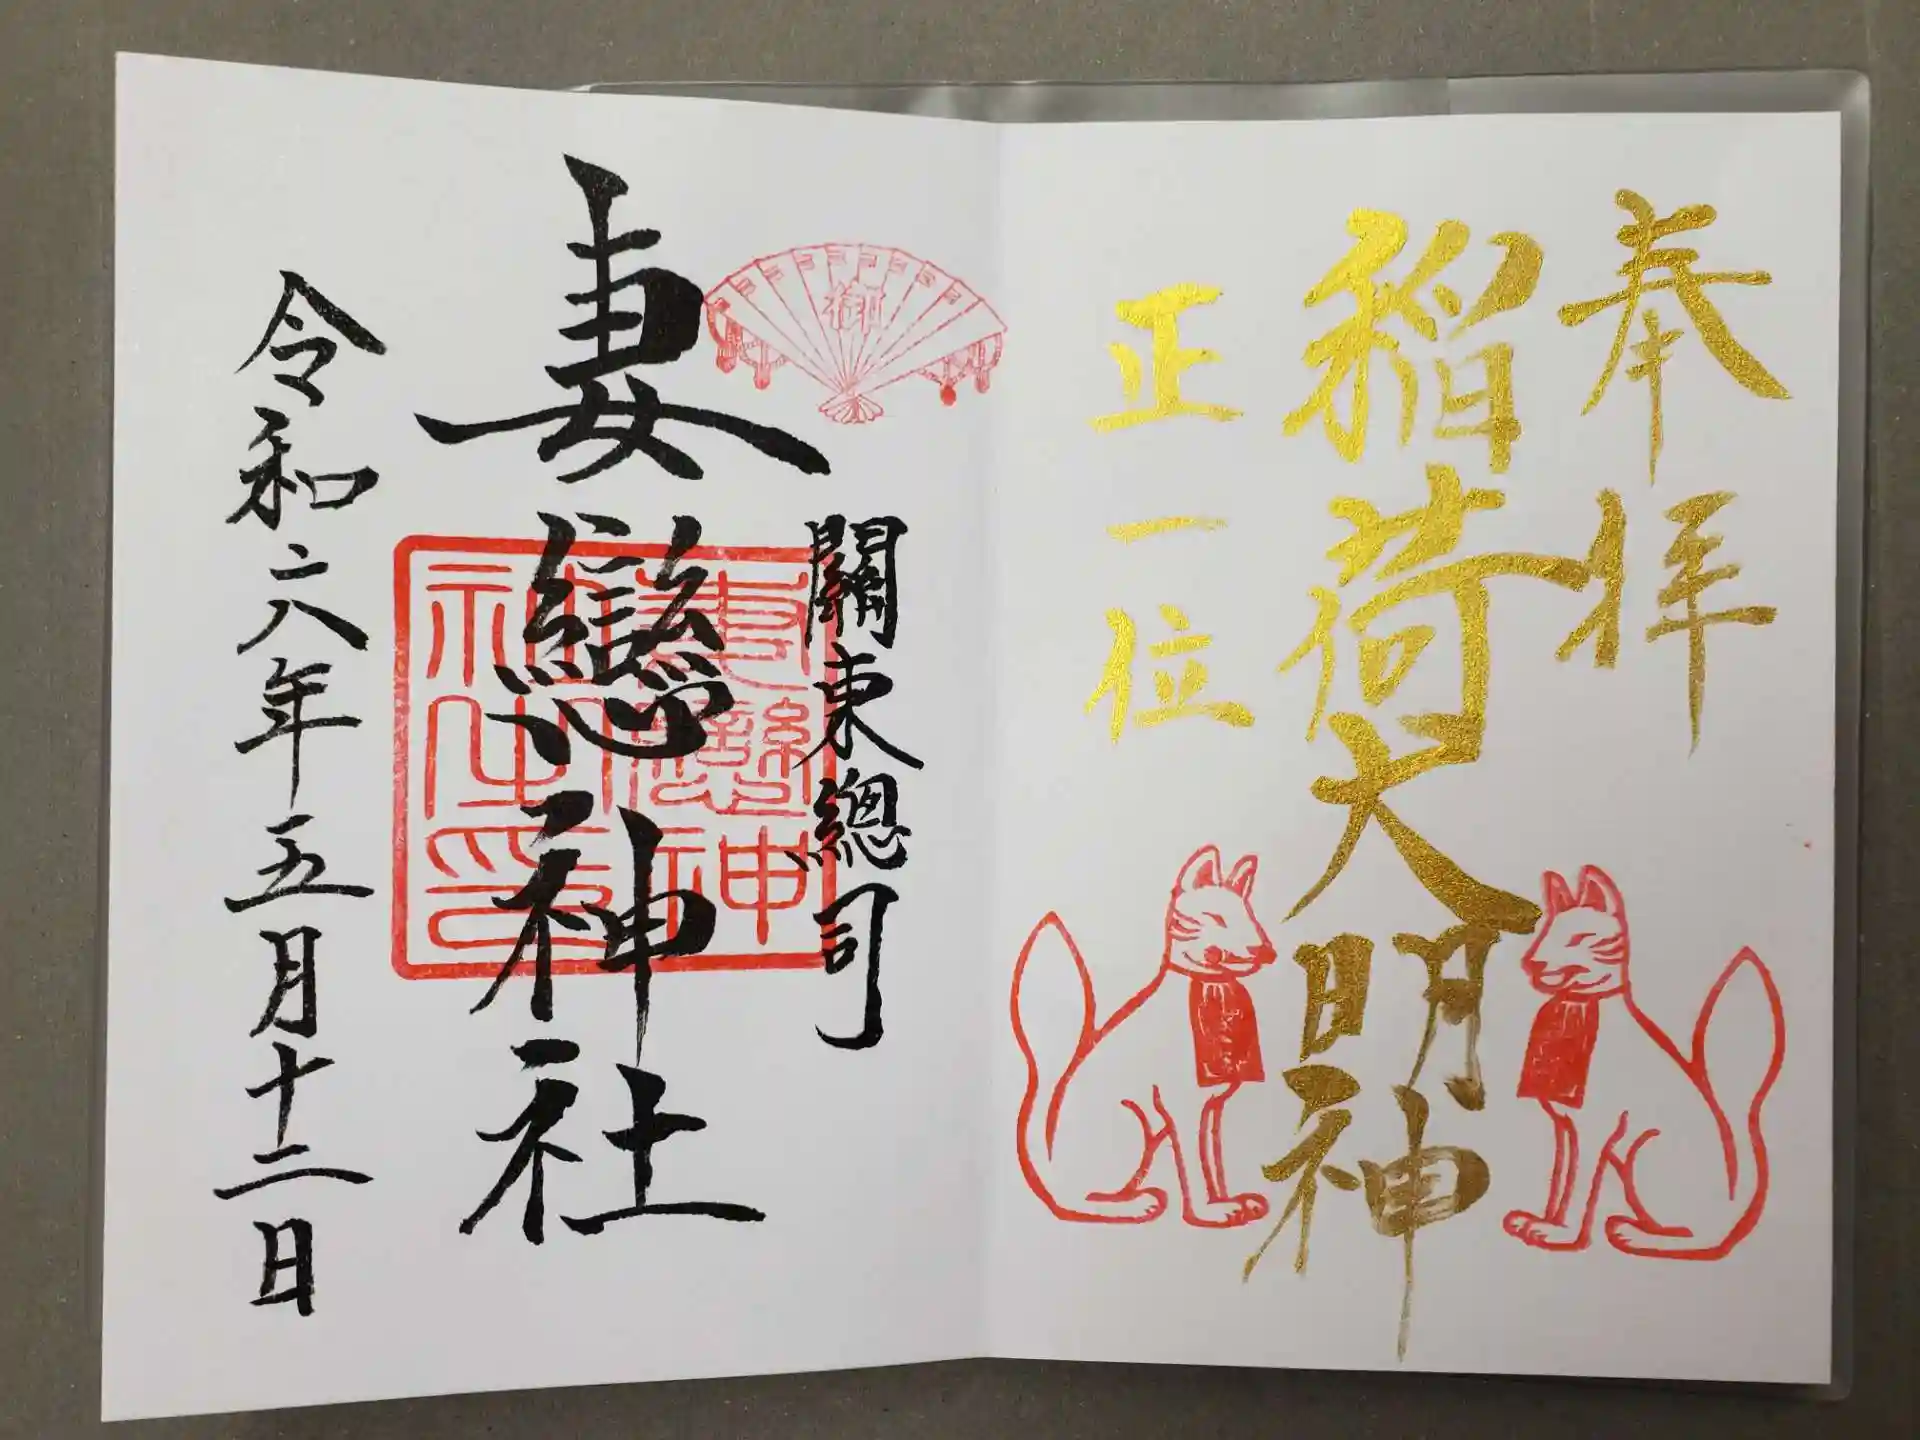 奉拝
稲荷大明神
正一位
御
關東總司
妻戀神社
妻戀神
社之印
令和六年五月十二日